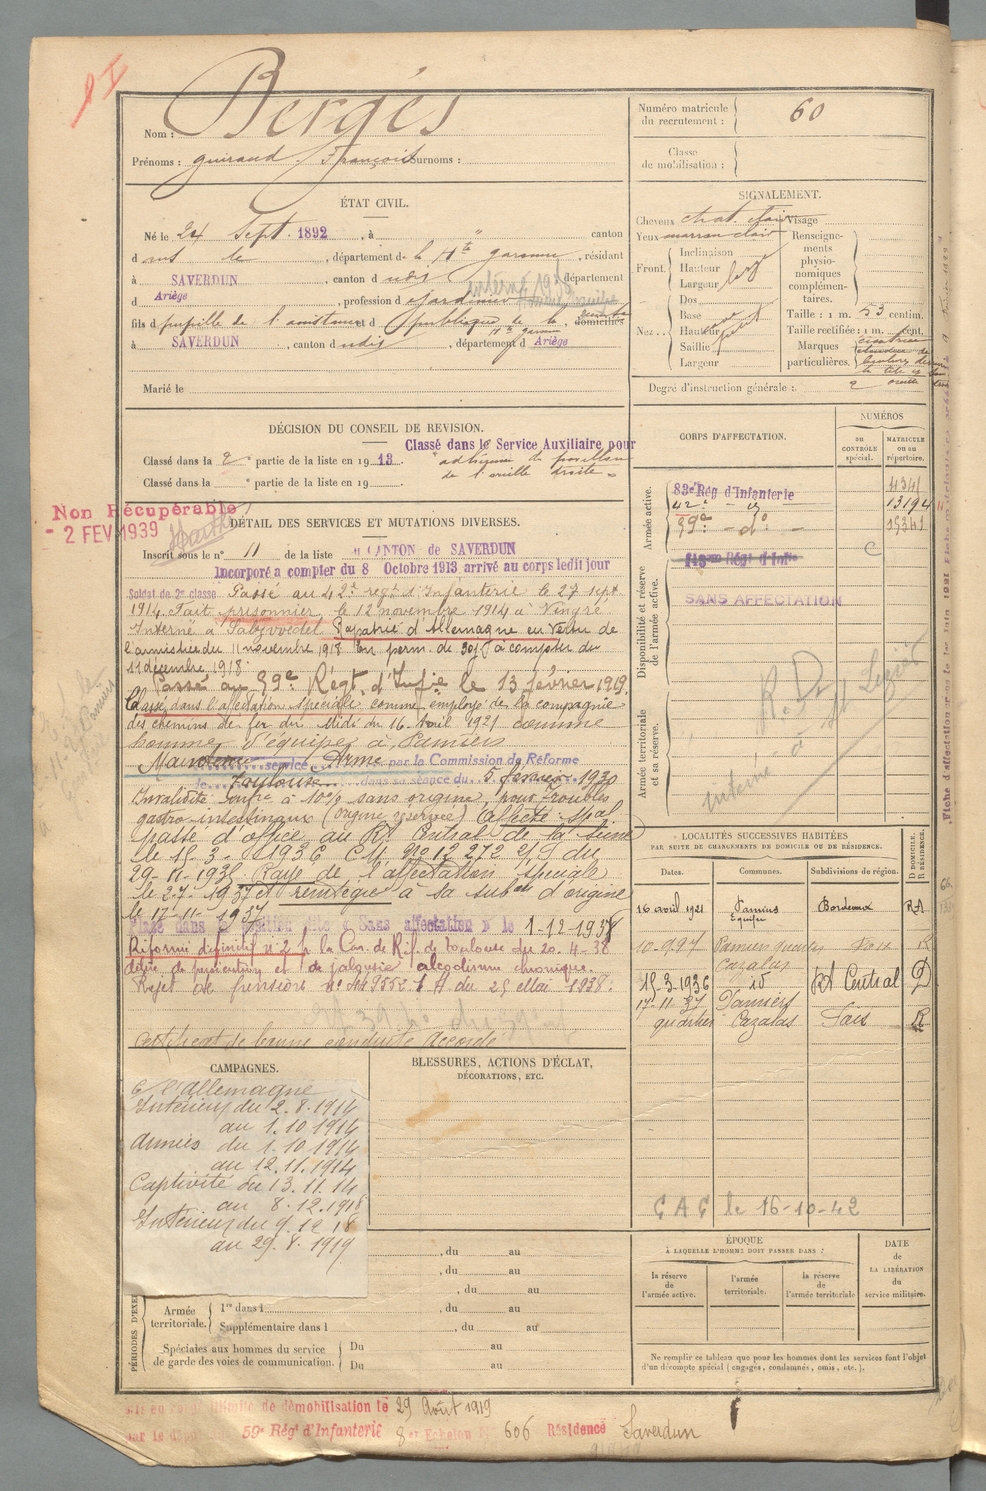 Nom : Bergès
Prénoms : guiraud François Surnoms :
Numéro matricule du recrutement : 60
Classe de mobilisation :
ÉTAT CIVIL.
Né le 24 Sept. 1892, à " canton
d , département de la Hte garonne, résidant
à SAVERDUN, canton d udit département
d Ariège, profession d jardinier
interné 1938
fils d pupille de l'assistance et d publique de la domiciliés
Hte garonne
à SAVERDUN, canton d udit, département d Ariège
Marié le
SIGNALEMENT.
Cheveux chat. clair
Yeux marron clair
Front. Inclinaison
Hauteur
Largeur large
Nez. Dos
Base
Hauteur
Saillie
Largeur
Visage
Renseignements physionomiques complémentaires.
Taille : 1 m. 53 centim.
Taille rectifiée : 1 m. cent.
Marques particulières. cicatrice
Degré d'instruction générale : 2
DÉCISION DU CONSEIL DE REVISION.
Classé dans le Service Auxiliaire pour
Classé dans la 2e partie de la liste en 1913. "adhérence du pavillon
Classé dans la e partie de la liste en 19 . de l'oreille droite"
Non Récupérable
- 2 FEV 1939
DÉTAIL DES SERVICES ET MUTATIONS DIVERSES.
Inscrit sous le n° 11 de la liste CANTON de SAVERDUN
Incorporé à compter du 8 Octobre 1913 arrivé au corps ledit jour
Soldat de 2e classe Passé au 42e régt d'Infanterie le 27 sept
1914. Fait prisonnier le 12 novembre 1914 à Vingré
Interné à Rapatrié d'Allemagne en vertu de
l'armistice du 11 novembre 1918 En perm. de 30j à compter du
11 décembre 1918.
Passé au 59e Régt. d'Infie le 13 février 1919.
Classé dans l'affectation spéciale comme employé de la compagnie
des chemins de fer du Midi du 16 avril 1921 comme
homme d'équipe à Pamiers
Maintenu service Armé par la Commission de Réforme
de Toulouse dans sa séance du 5 1930
Invalidité infre à 10% sans origine, pour Troubles
gastro-intestinaux (origine réservée) Affecté Spal
passé d'office au Rt Central de la Seine
le 15-3-1936 C.M. N° 12 272 2/S du
29-11-1935 Rayé de l'affectation spéciale
le 27- -1937 et renvoyé à la subon d'origine
le 17-11-1937
Placé dans la position dite « Sans affectation » le 1-12-1937
Réformé définitif n° 2 la Con. de Réf. de Toulouse du 20-4-38
délire de persécution et de jalousie alcoolisme chronique.
Rejet de pension n° du 25 Mai 1938.
Certificat de bonne conduite Accordé
CORPS D'AFFECTATION.
NUMÉROS
au CONTRÔLE spécial.
MATRICULE ou au répertoire.
Armée active.
83e Rég d'Infanterie 4341
42e - d° 13194
59e - d° - 15341
Disponibilité et réserve de l'armée active.
SANS AFFECTATION
Armée territoriale et sa réserve.
R. D.
St Lizier
interné à
LOCALITÉS SUCCESSIVES HABITÉES
PAR SUITE DE CHANGEMENTS DE DOMICILE OU DE RÉSIDENCE.
Dates. Communes. Subdivisions de région. D DOMICILE. R RÉSIDENCE.
16 avril 1921 Pamiers Bordeaux
Equipe
10-9-27 Pamiers quartier R
Cazalas
15-3-1936 id Rt Central D
17-11-37 Pamiers
quartier Cazalas Foix R
GAG le 16-10-42
CAMPAGNES.
C/ l'Allemagne
Intérieur du 2.8.1914
au 1.10.1914
Armées du 1.10.1914
au 12.11.1914
Captivité du 13.11.14
au 8.12.1918
Intérieur du 9.12.18
au 29.8.1919
BLESSURES, ACTIONS D'ÉCLAT,
DÉCORATIONS, ETC.
, du au
, du au
, du au
Armée territoriale. 1re dans l , du au
Supplémentaire dans l , du au
Spéciales aux hommes du service de garde des voies de communication. Du au
Du au
ÉPOQUE
À LAQUELLE L'HOMME DOIT PASSER DANS :
la réserve de l'armée active.
l'armée territoriale.
la réserve de l'armée territoriale
DATE de LA LIBÉRATION du service militaire.
Ne remplir ce tableau que pour les hommes dont les services font l'objet
d'un décompte spécial (engagés, condamnés, omis, etc.).
en congé illimité de démobilisation le 29 Août 1919
par le dépôt 59e Rég d'Infanterie 8e Echelon N° 606 Résidence Saverdun